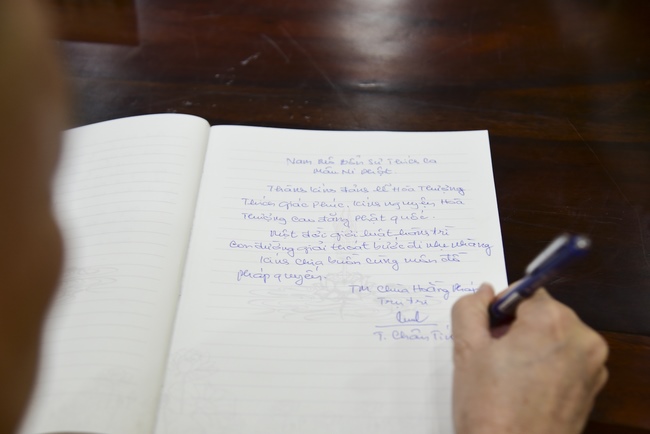 Nam Mô Bổn Sư Thích Ca
Mâu Ni Phật
Thành kính đảnh lễ Hòa Thượng
Thích Giác Phúc. Kính nguyện Hòa
Thượng Cao đăng Phật quốc.
Một đời giới luật hành trì
Con đường giải thoát bước đi nhẹ nhàng
Kính chia buồn cùng môn đồ
pháp quyến.
TM Chùa Hoằng Pháp
Trụ trì
T. Chân Tín